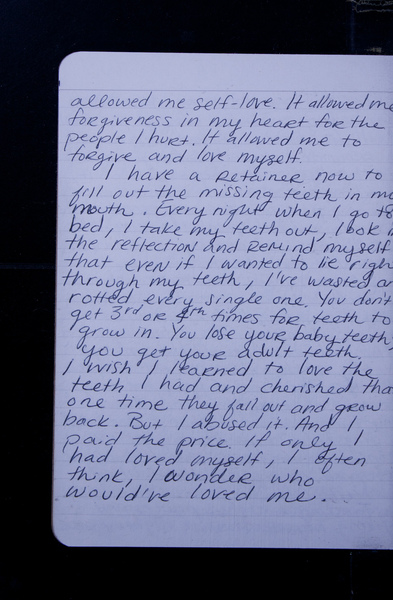 allowed me self-love. It allowed me
forgiveness in my heart for the
people I hurt. It allowed me to
forgive and love myself.
I have a retainer now to
fill out the missing teeth in my
mouth. Every night when I go to
bed, I take my teeth out, look in
the reflection and remind myself
that even if I wanted to lie right
through my teeth, I've wasted an
rotted every single one. You don't
get 3rd or 4th times for teeth to
grow in. You lose your baby teeth,
you get your adult teeth.
I wish I learned to love the
teeth I had and cherished tha
one time they fall out and grow
back. But I abused it. And I,
paid the price. If only I
had loved myself, I often
think, I wonder who
would've loved me...